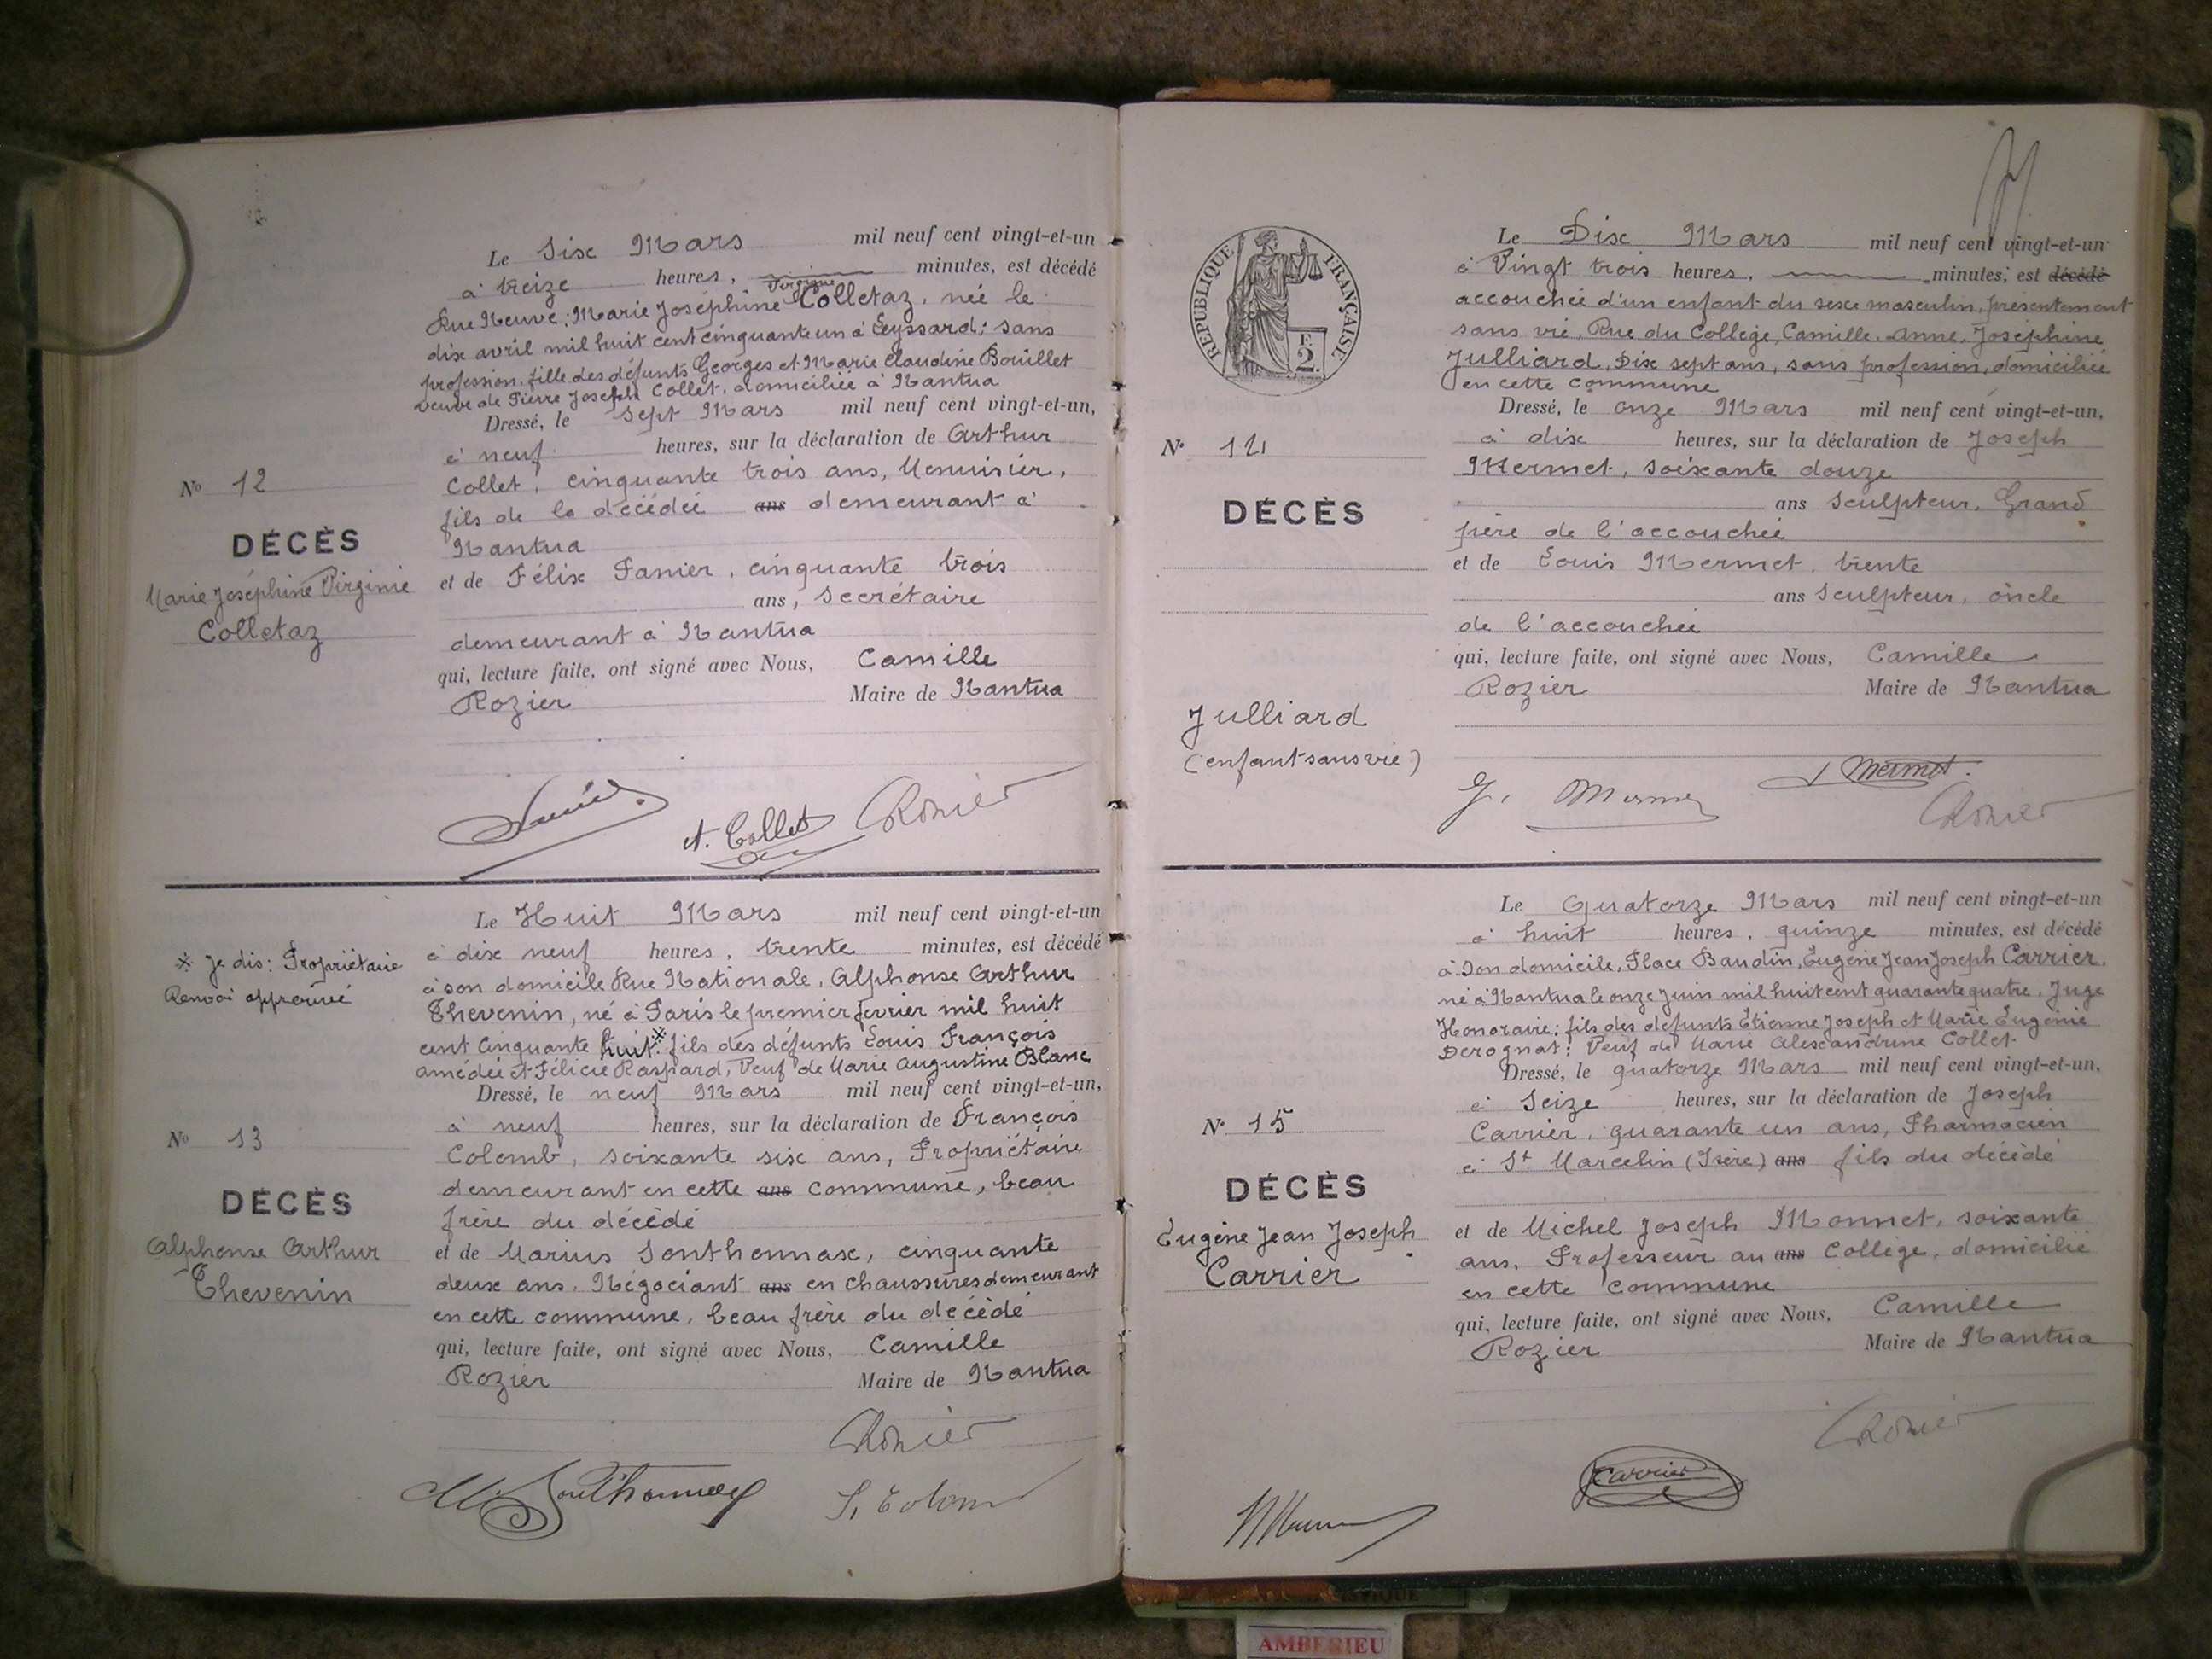 Le Six Mars mil neuf cent vingt-et-un
à treize heures, minutes, est décédé
Virginie
Rue Neuve : Marie Joséphine Colletaz, née le
dix avril mil huit cent cinquante un à Leyssard ; sans
profession, fille des défunts Georges et Marie Claudine Bouillet
veuve de Pierre Joseph Collet, domiciliée à Nantua
Dressé, le Sept Mars mil neuf cent vingt-et-un,
à neuf heures, sur la déclaration de Arthur
Collet, cinquante trois ans, Menuisier,
fils de la décédée ans demeurant à
Nantua
et de Félix Fanier, cinquante trois
ans, Secrétaire
demeurant à Nantua
qui, lecture faite, ont signé avec Nous, Camille
Rozier Maire de Nantua
No 12
DÉCÈS
Marie Joséphine Virginie
Colletaz
A. Collet Rozier
Le Huit Mars mil neuf cent vingt-et-un
à dix neuf heures, trente minutes, est décédé
à son domicile Rue Nationale, Alphonse Arthur
Thevenin, né à Paris le premier février mil huit
cent cinquante huit * fils des défunts Louis François
Amédée et Félicie Raspard, Veuf de Marie Augustine Blanc
Dressé, le neuf Mars mil neuf cent vingt-et-un,
à neuf heures, sur la déclaration de François
Colomb, soixante six ans, Propriétaire
demeurant en cette ans commune, beau
frère du décédé
et de Marius Sonthonnax, cinquante
deux ans. Négociant ans en chaussures demeurant
en cette commune, beau frère du décédé
qui, lecture faite, ont signé avec Nous, Camille
Rozier Maire de Nantua
* Je dis : Propriétaire
Renvoi approuvé
No 13
DÉCÈS
Alphonse Arthur
Thevenin
Rozier
M. Sonthonnax F. Colomb
RÉPUBLIQUE FRANÇAISE
F.
2.
Le Dix Mars mil neuf cent vingt-et-un
à Vingt trois heures, minutes, est décédé
accouchée d'un enfant du sexe masculin, présentement
sans vie, Rue du Collège, Camille Anne Joséphine
Julliard, Dix sept ans, sans profession, domiciliée
en cette commune
Dressé, le onze Mars mil neuf cent vingt-et-un,
à dix heures, sur la déclaration de Joseph
Mermet, soixante douze
ans Sculpteur, Grand
père de l'accouchée
et de Louis Mermet, trente
ans Sculpteur, oncle
de l'accouchée
qui, lecture faite, ont signé avec Nous, Camille
Rozier Maire de Nantua
No
DÉCÈS
Julliard
(enfant sans vie)
J. Mermet Mermet
Rozier
Le Quatorze Mars mil neuf cent vingt-et-un
à huit heures, quinze minutes, est décédé
à son domicile, Place Baudin, Eugène Jean Joseph Carrier,
né à Nantua le onze Juin mil huit cent quarante quatre, Juge
Honoraire ; fils des défunts Etienne Joseph et Marie Eugénie
Derognat : Veuf de Marie Alexandrine Collet
Dressé, le quatorze Mars mil neuf cent vingt-et-un,
à Seize heures, sur la déclaration de Joseph
Carrier, quarante un ans, Pharmacien
à St Marcelin (Isère) ans fils du décédé
et de Michel Joseph Monnet, soixante
ans, Professeur au ans Collège, domicilié
en cette commune
qui, lecture faite, ont signé avec Nous, Camille
Rozier Maire de Nantua
No 15
DÉCÈS
Eugène Jean Joseph
Carrier
Rozier
Carrier
AMBERIEU